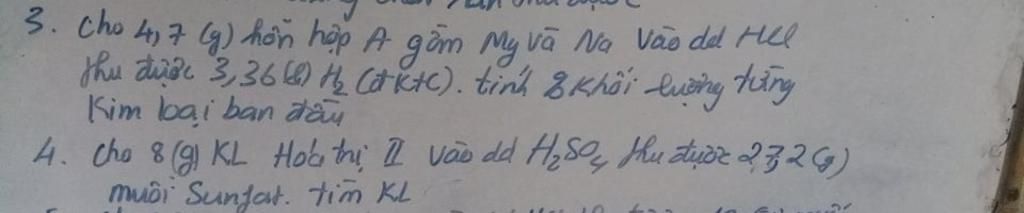 3. Cho 4,7 (g) hỗn hợp A gồm Mg và Na vào dd HCl
thu được 3,36 (l) H2 (đktc). tính % khối lượng từng
Kim loại ban đầu
4. Cho 8 (g) KL Hoá trị II vào dd H2SO4 thu được 27,2 (g)
muối Sunfat. tìm KL